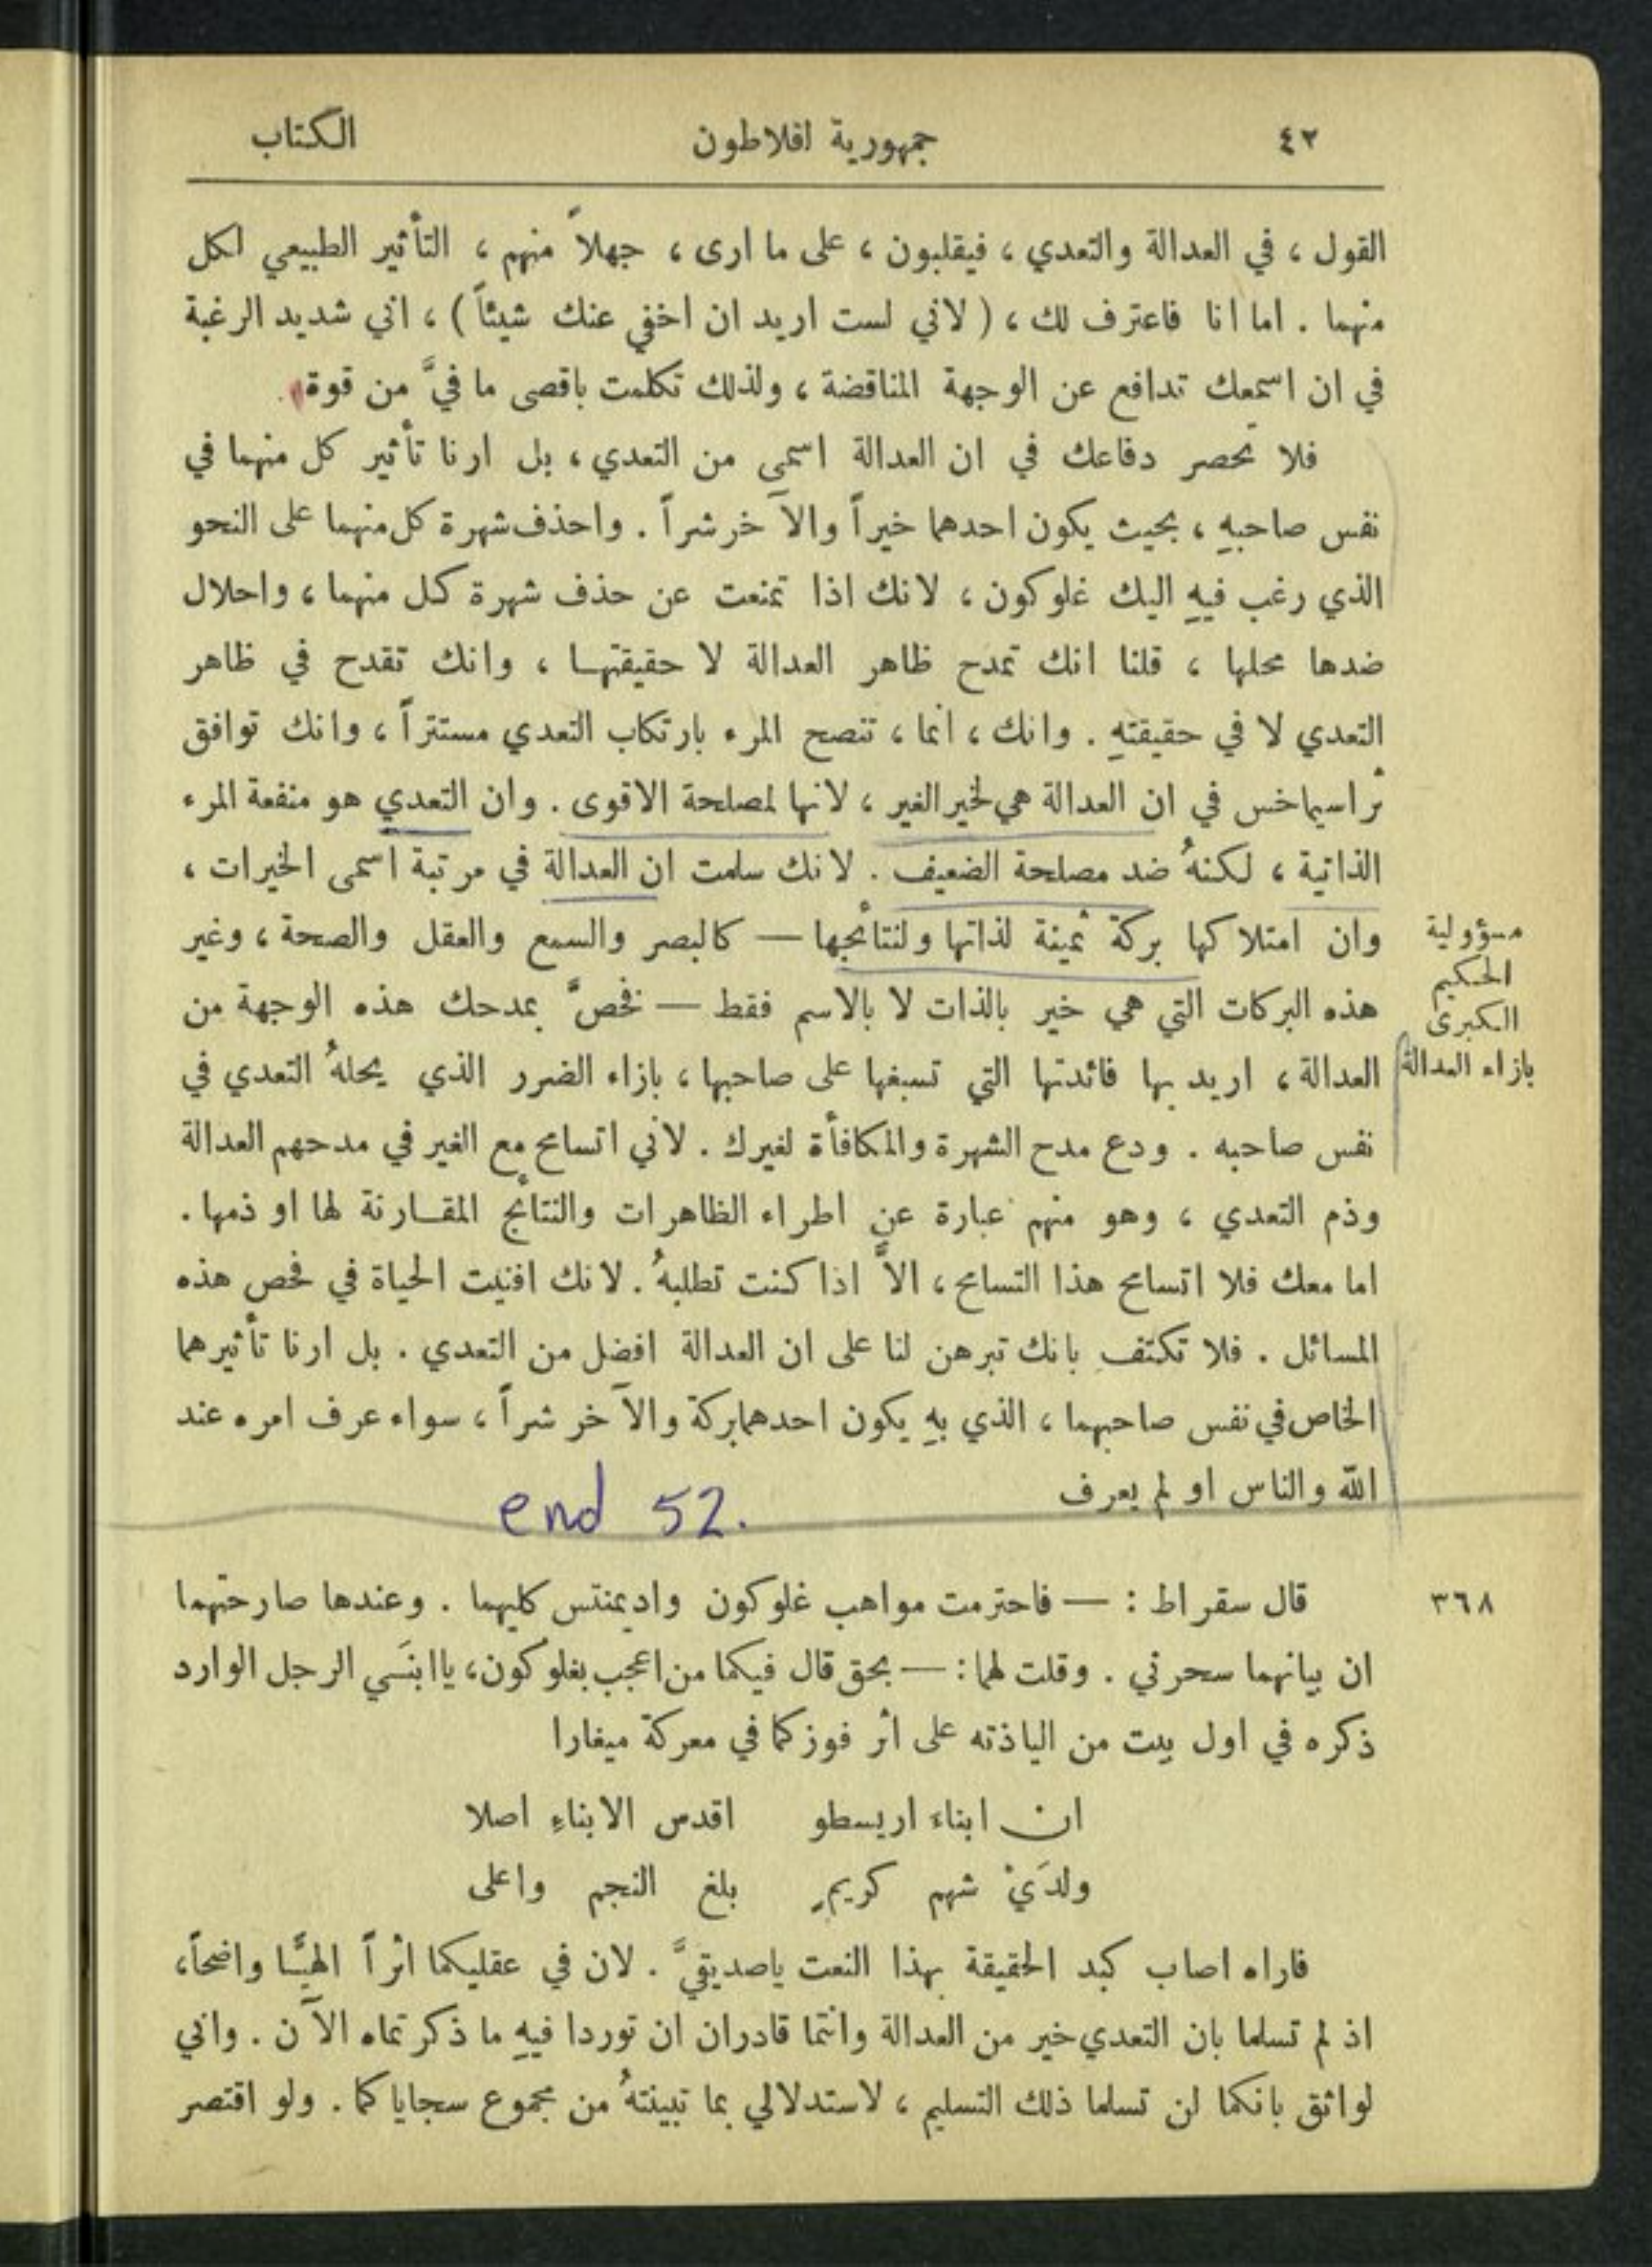 ٤٢ جمهورية افلاطون الكتاب
القول ، في العدالة والتعدي ، فيقلبون ، على ما ارى ، جهلاً منهم ، التأثير الطبيعي لكل
منهما . اما انا فاعترف لك ، ( لاني لست اريد ان اخفي عنك شيئاً ) ، اني شديد الرغبة
في ان اسمعك تدافع عن الوجهة المناقضة ، ولذلك تكلمت باقصى ما فيَّ من قوة .
فلا تحصر دفاعك في ان العدالة اسمى من التعدي ، بل ارنا تأثير كل منهما في
نفس صاحبهِ ، بحيث يكون احدهما خيراً والآخر شراً . واحذف شهرة كل منهما على النحو
الذي رغب فيهِ اليك غلوكون ، لانك اذا تمنعت عن حذف شهرة كل منهما ، واحلال
ضدها محلها ، قلنا انك تمدح ظاهر العدالة لا حقيقتهـا ، وانك تقدح في ظاهر
التعدي لا في حقيقتهِ . وانك ، انما ، تنصح المرء بارتكاب التعدي مستتراً ، وانك توافق
ثراسيماخس في ان العدالة هي لخير الغير ، لانها لمصلحة الاقوى . وان التعدي هو منفعة المرء
الذاتية ، لكنهُ ضد مصلحة الضعيف . لانك سلمت ان العدالة في مرتبة اسمى الخيرات ،
وان امتلاكها بركة ثمينة لذاتها ولنتائجها — كالبصر والسمع والعقل والصحة ، وغير
هذه البركات التي هي خير بالذات لا بالاسم فقط — فخصَّ بمدحك هذه الوجهة من
العدالة ، اريد بها فائدتها التي تسبغها على صاحبها ، بازاء الضرر الذي يحلهُ التعدي في
نفس صاحبه . ودع مدح الشهرة والمكافأة لغيرك . لاني اتسامح مع الغير في مدحهم العدالة
وذم التعدي ، وهو منهم عبارة عن اطراء الظاهرات والنتائج المقـارنة لها او ذمها .
اما معك فلا اتسامح هذا التسامح ، الاَّ اذا كنت تطلبهُ . لانك افنيت الحياة في فحص هذه
المسائل . فلا تكتفِ بانك تبرهن لنا على ان العدالة افضل من التعدي . بل ارنا تأثيرهما
الخاص في نفس صاحبهما ، الذي بهِ يكون احدهما بركة والآخر شراً ، سواء عرف امره عند
الله والناس او لم يعرف
مسؤولية
الحكيم
الكبرى
بازاء العدالة
end 52.
٣٦٨ قال سقراط : — فاحترمت مواهب غلوكون واديمنتس كليهما . وعندها صارحتهما
ان بيانهما سحرني . وقلت لهما : — بحق قال فيكما من اعجب بغلوكون ، يا ابنَي الرجل الوارد
ذكره في اول بيت من الياذته على اثر فوزكما في معركة ميغارا
ان ابناء اريسطو اقدس الابناءِ اصلا
ولدَيْ شهم كريمٍ بلغ النجم واعلى
فاراه اصاب كبد الحقيقة بهذا النعت ياصديقيَّ . لان في عقليكما اثراً الهيًّا واضحاً ،
اذ لم تسلما بان التعدي خير من العدالة وانتما قادران ان توردا فيهِ ما ذكرتماه الآن . واني
لواثق بانكما لن تسلما ذلك التسليم ، لاستدلالي بما تبينتهُ من مجموع سجاياكما . ولو اقتصر